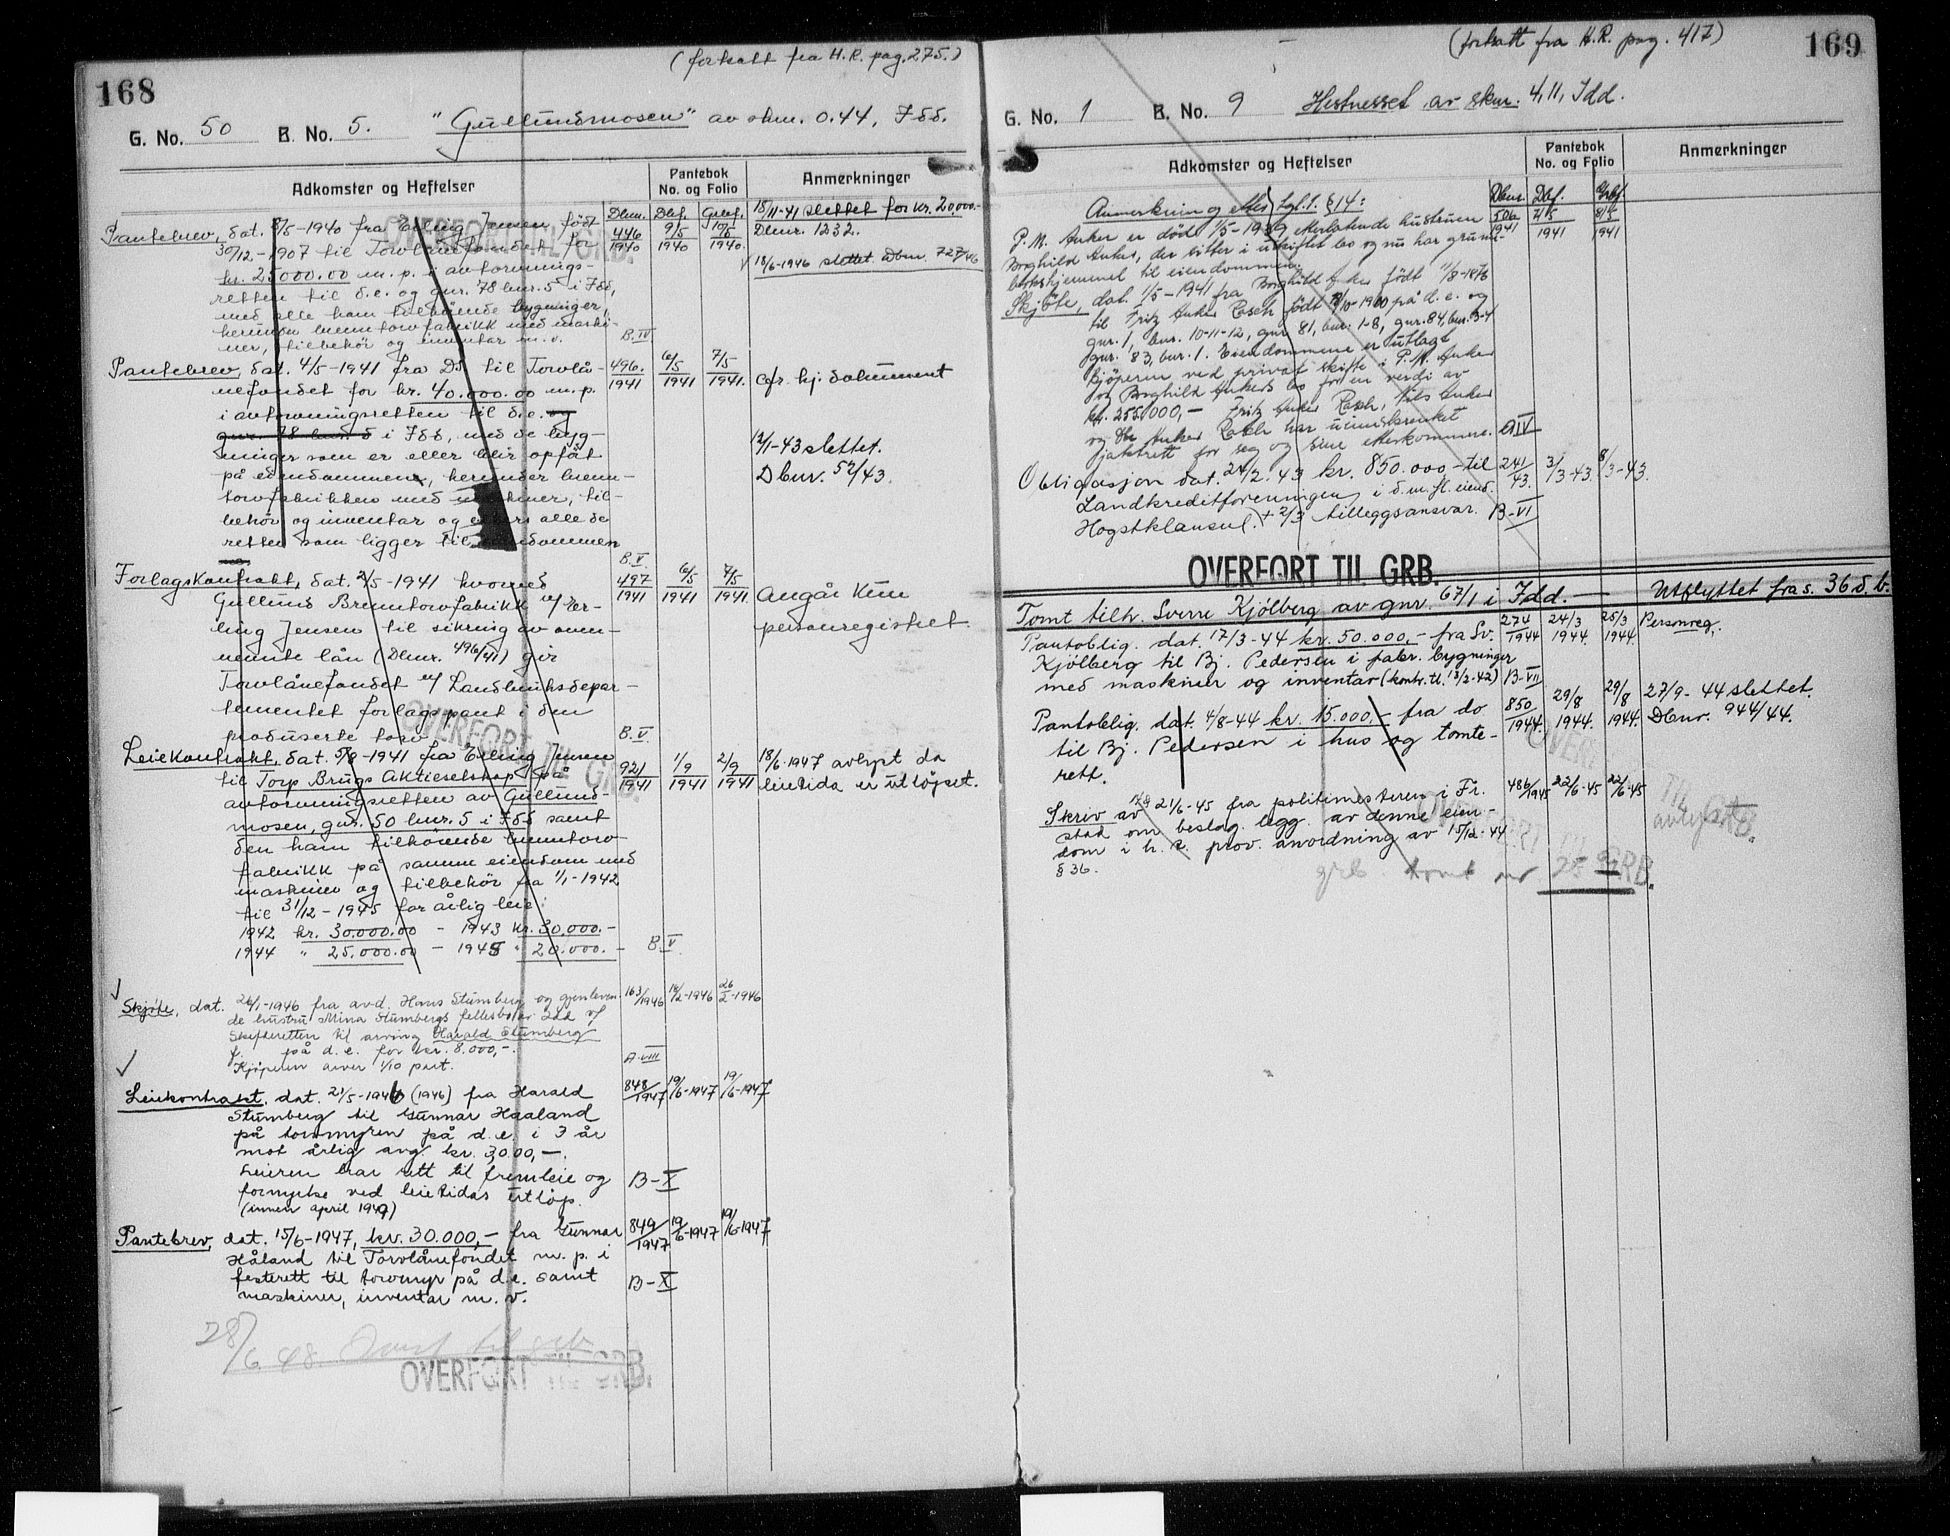 168
(fortsatt fra H.R. pag. 275.)
G. No. 50 B. No. 5. "Gullundmosen" av skm. 0.44, Idd.
Adkomster og Heftelser
Pantebok No. og Folio
Anmerkninger
Dbnr. Dbf. Grbf.
Pantebrev, dat. 8/5-1940 fra Erling Jensen født 446/1940 9/5 1940 10/5 1940. 15/11-41 slettet for kr. 20,000.-
30/12-1907 til Torvlånefondet for Dbnr. 1232.
kr. 25000.00 m.p. i avtorvnings- 18/6-1946 slettet Dbnr 727/46
retten til d.e. og gnr. 78 bnr. 5 i Idd,
med alle ham tilhørende bygninger,
herunder brenntorvfabrikk med maski-
ner, tilbehør og inventar m.v. B.IV
Pantebrev, dat. 4/5-1941 fra Ds. til Torvlå- 496. 1941 6/5 1941 7/5 1941.
nefondet for kr. 40.000.00 m.p. cfr. hj. dokument
i avtorvningsretten til d.e. og
gnr. 78 bnr. 5 i Idd, med de byg-
ninger som er eller blir opført 12/1-43 slettet.
på eiendommen, herunder brenn- Dbnr. 52/43.
torvfabrikken med maskiner, til-
behør og inventar og ellers alle de
retter som ligger til eiendommen
B.V.
Forlagskontrakt, dat. 2/5-1941 hvorved 497 1941 6/5 1941 7/5 1941.
Gullund Brenntorvfabrikk v/ Er- Angår kun
ling Jensen til sikring av oven- personregistret
nevnte lån (Dbnr. 496/41) gir
Torvlånefondet v/ Landbruksdepar-
tementet forlagspant i den
produserte torv B.V.
Leiekontrakt, dat. 5/8-1941 fra Erling Jensen 921 1941 1/9 1941 2/9 1941 18/6-1947 avlyst da
til Torp Brugs Aktieselskap på leietida er utløpet.
avtorvningsretten av Gullund-
mosen, gnr. 50 bnr. 5 i Idd samt
den ham tilhørende brenntorv-
fabrikk på samme eiendom med
maskiner og tilbehør fra 1/1-1942
til 31/12-1945 for årlig leie:
1942 kr. 30.000.00 - 1943 kr. 30.000.-
1944 " 25.000.00 - 1945 " 20.000.- B.V
Skjøte, dat. 26/1-1946 fra avd. Hans Stumberg og gjenleven- 163/1946 18/2-1946 26/2-1946
de hustru Mina Stumbergs fellesbo av Idd v/
Skifteretten til arving Harald Stumberg
f. på d.e. for kr. 8.000,-.
Kjøperen arver 1/10 part. A-VIII
Leiekontrakt, dat. 21/5-1946 (1946) fra Harald 848/1947 19/6-1947 19/6-1947
Stumberg til Gunnar Haaland
på torvmyren på d.e. i 3 år
mot årlig avg. kr. 3000,-.
Leieren har rett til fremleie og B-X
fornyelse ved leietidas utløp.
(innen april 1949)
Pantebrev, dat. 15/6-1947, kr. 30.000,- fra Gunnar 849/1947 19/6-1947 19/6-1947
Håland til Torvlånefondet m.p. i
festerett til torvmyr på d.e. samt B-X
maskiner, inventar m.v.
28/6 48.
OVERFØRT TIL GRB.
OVERFØRT TIL GRB.
OVERFØRT TIL GRB.
169
(fortsatt fra H.R. pag. 417)
G. No. 1 B. No. 9 Hestnesset av skm. 4,11, Idd.
Adkomster og Heftelser
Pantebok No. og Folio
Anmerkninger
Dbnr. Dbf. Grbf
Anmerkning etter tgl.l. § 14:
P.M. Anker er død 1/5-19 etterlatende hustruen 506 1941 1941 1941
Borghild Anker, der sitter i uskiftet bo og nu har grunn-
bokshjemmel til eiendommen.
Skjøte, dat. 1/5-1941 fra Borghild Anker født
til Fritz Anker Rasch født /10-1900 på d.e. og
gnr. 1, bnr. 10-11-12, gnr 81, bnr. 1-8, gnr. 84, bnr. 3-4
gnr. 83, bnr. 1. Eiendommene er utlagt
kjøperen ved privat skifte i P.M. Anker
og Borghild Ankers bo for en verdi av
kr. 255.000,- Fritz Anker Rasch, Nils Anker
og Anker Rasch har uinnskrenket
jaktrett for seg og sine etterkommere. A IV
Obligasjon dat. 24/2.43 kr. 850.000- til 241/43. 3/3-43. 8/3-43.
Landkreditforeningen i d.m.fl. eiend.
Hogstklausul. + 2/3 tilleggsansvar. B-VI
OVERFØRT TIL GRB.
Tomt tilh. Sverre Kjølberg av gnr. 67/1 i Idd. — Utflyttet fra s. 36 d.b.
Pantoblig. dat. 17/3-44 kr. 50.000,- fra Sv. 274 1944 24/3 1944. 25/3 1944. Personreg.
Kjølberg til Bj. Pedersen i fabr. bygninger
med maskiner og inventar (kontr. tl. 13/2-42) B-VII
Pantoblig. dat. 4/8-44 kr. 15.000,- fra do 850 1944. 29/8 1944. 29/8 1944. 27/9-44 slettet.
til Bj. Pedersen i hus og tomte- Dbnr. 944/44.
rett.
Skriv av 21/6-45 fra politimesteren i Fr. 486/1945 22/6-45 22/6-45
stad om beslag. legg. av denne eien- avlyst
dom i h. t. prov. anordning av 15/12-44
§ 36.
grb.
OVERFØRT TIL GRB.